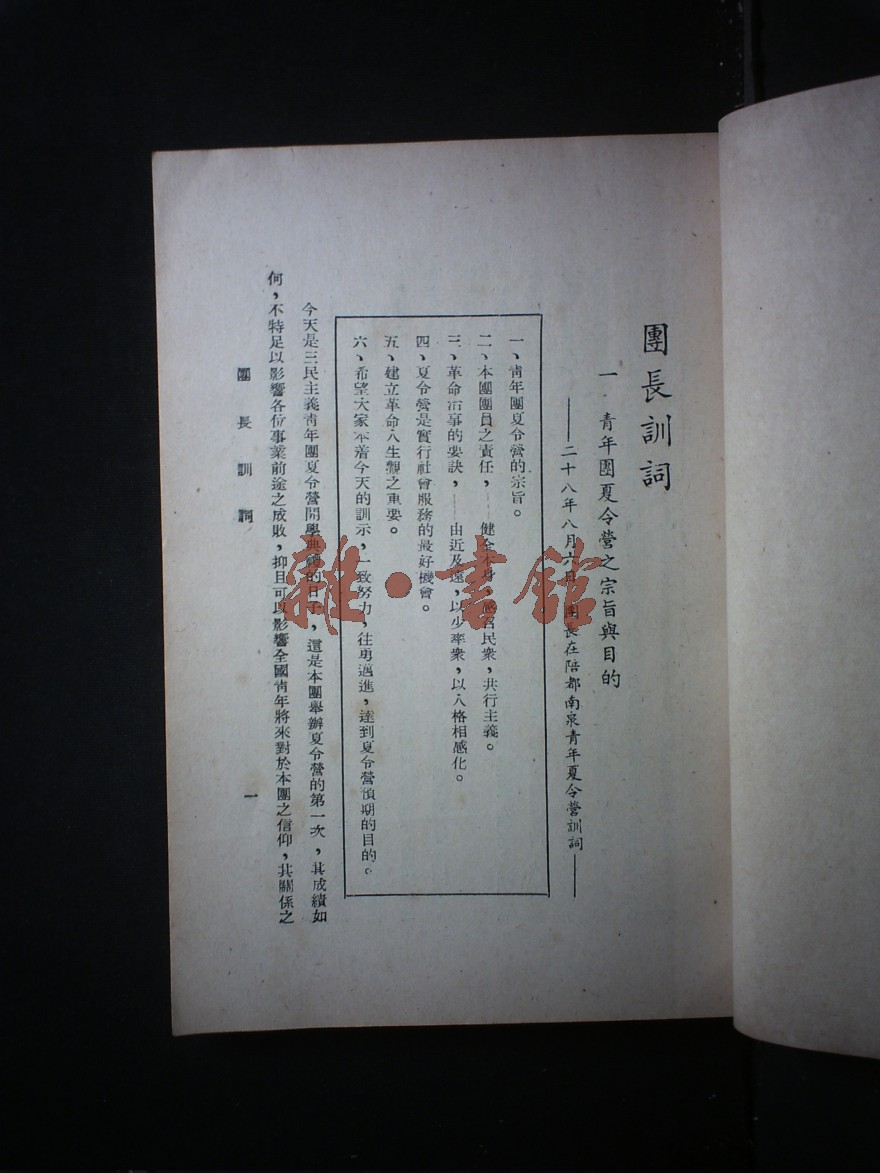 團長訓詞
一 青年團夏令營之宗旨與目的
——二十八年八月六日 團長在陪都南泉青年夏令營訓詞——
一、靑年團夏令營的宗旨。
二、本團團員之責任,——健全本身,感召民衆,共行主義。
三、革命治事的要訣,——由近及遠,以少率衆,以人格相感化。
四、夏令營是實行社會服務的最好機會。
五、建立革命人生觀之重要。
六、希望大家本着今天的訓示,一致努力,往勇邁進,達到夏令營預期的目的。
今天是三民主義靑年團夏令營開學典禮的日子,這是本團舉辦夏令營的第一次,其成績如
何,不特足以影響各位事業前途之成敗,抑且可以影響全國靑年將來對於本團之信仰,其關係之
團長訓詞
一
雜·書館